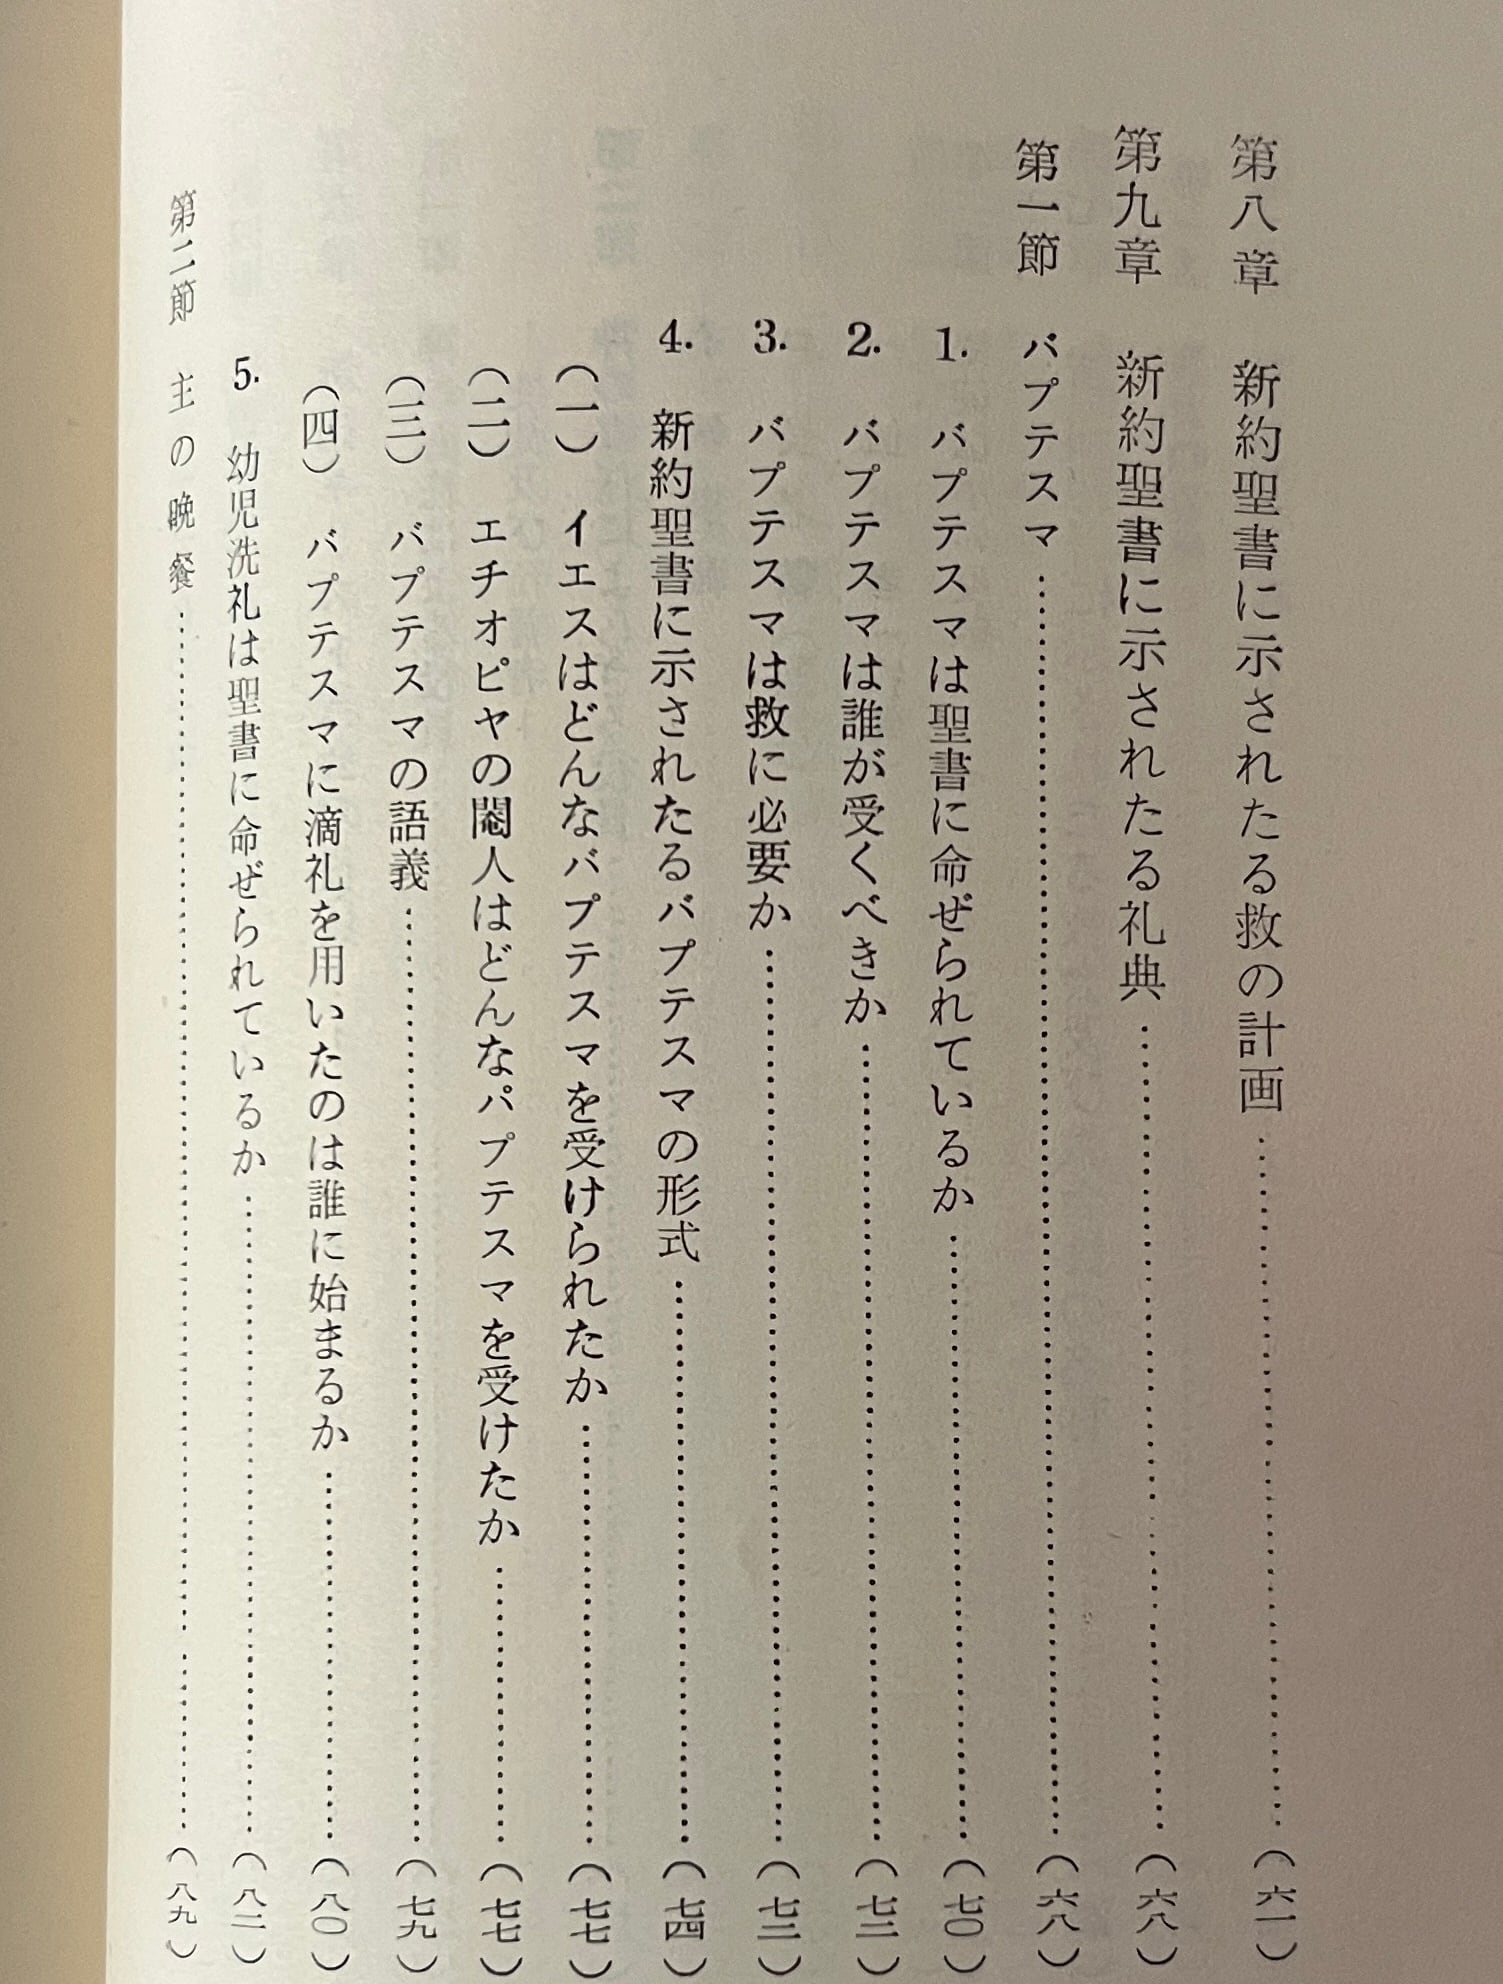 第八章 新約聖書に示されたる救の計画……(六一)
第九章 新約聖書に示されたる礼典……(六八)
第一節 バプテスマ……(六八)
1. バプテスマは聖書に命ぜられているか……(七〇)
2. バプテスマは誰が受くべきか……(七二)
3. バプテスマは救に必要か……(七三)
4. 新約聖書に示されたるバプテスマの形式……(七四)
(一) イエスはどんなバプテスマを受けられたか……(七七)
(二) エチオピヤの閹人はどんなバプテスマを受けたか……(七七)
(三) バプテスマの語義……(七九)
(四) バプテスマに滴礼を用いたのは誰に始まるか……(八〇)
5. 幼児洗礼は聖書に命ぜられているか……(八二)
第二節 主の晩餐……(八九)